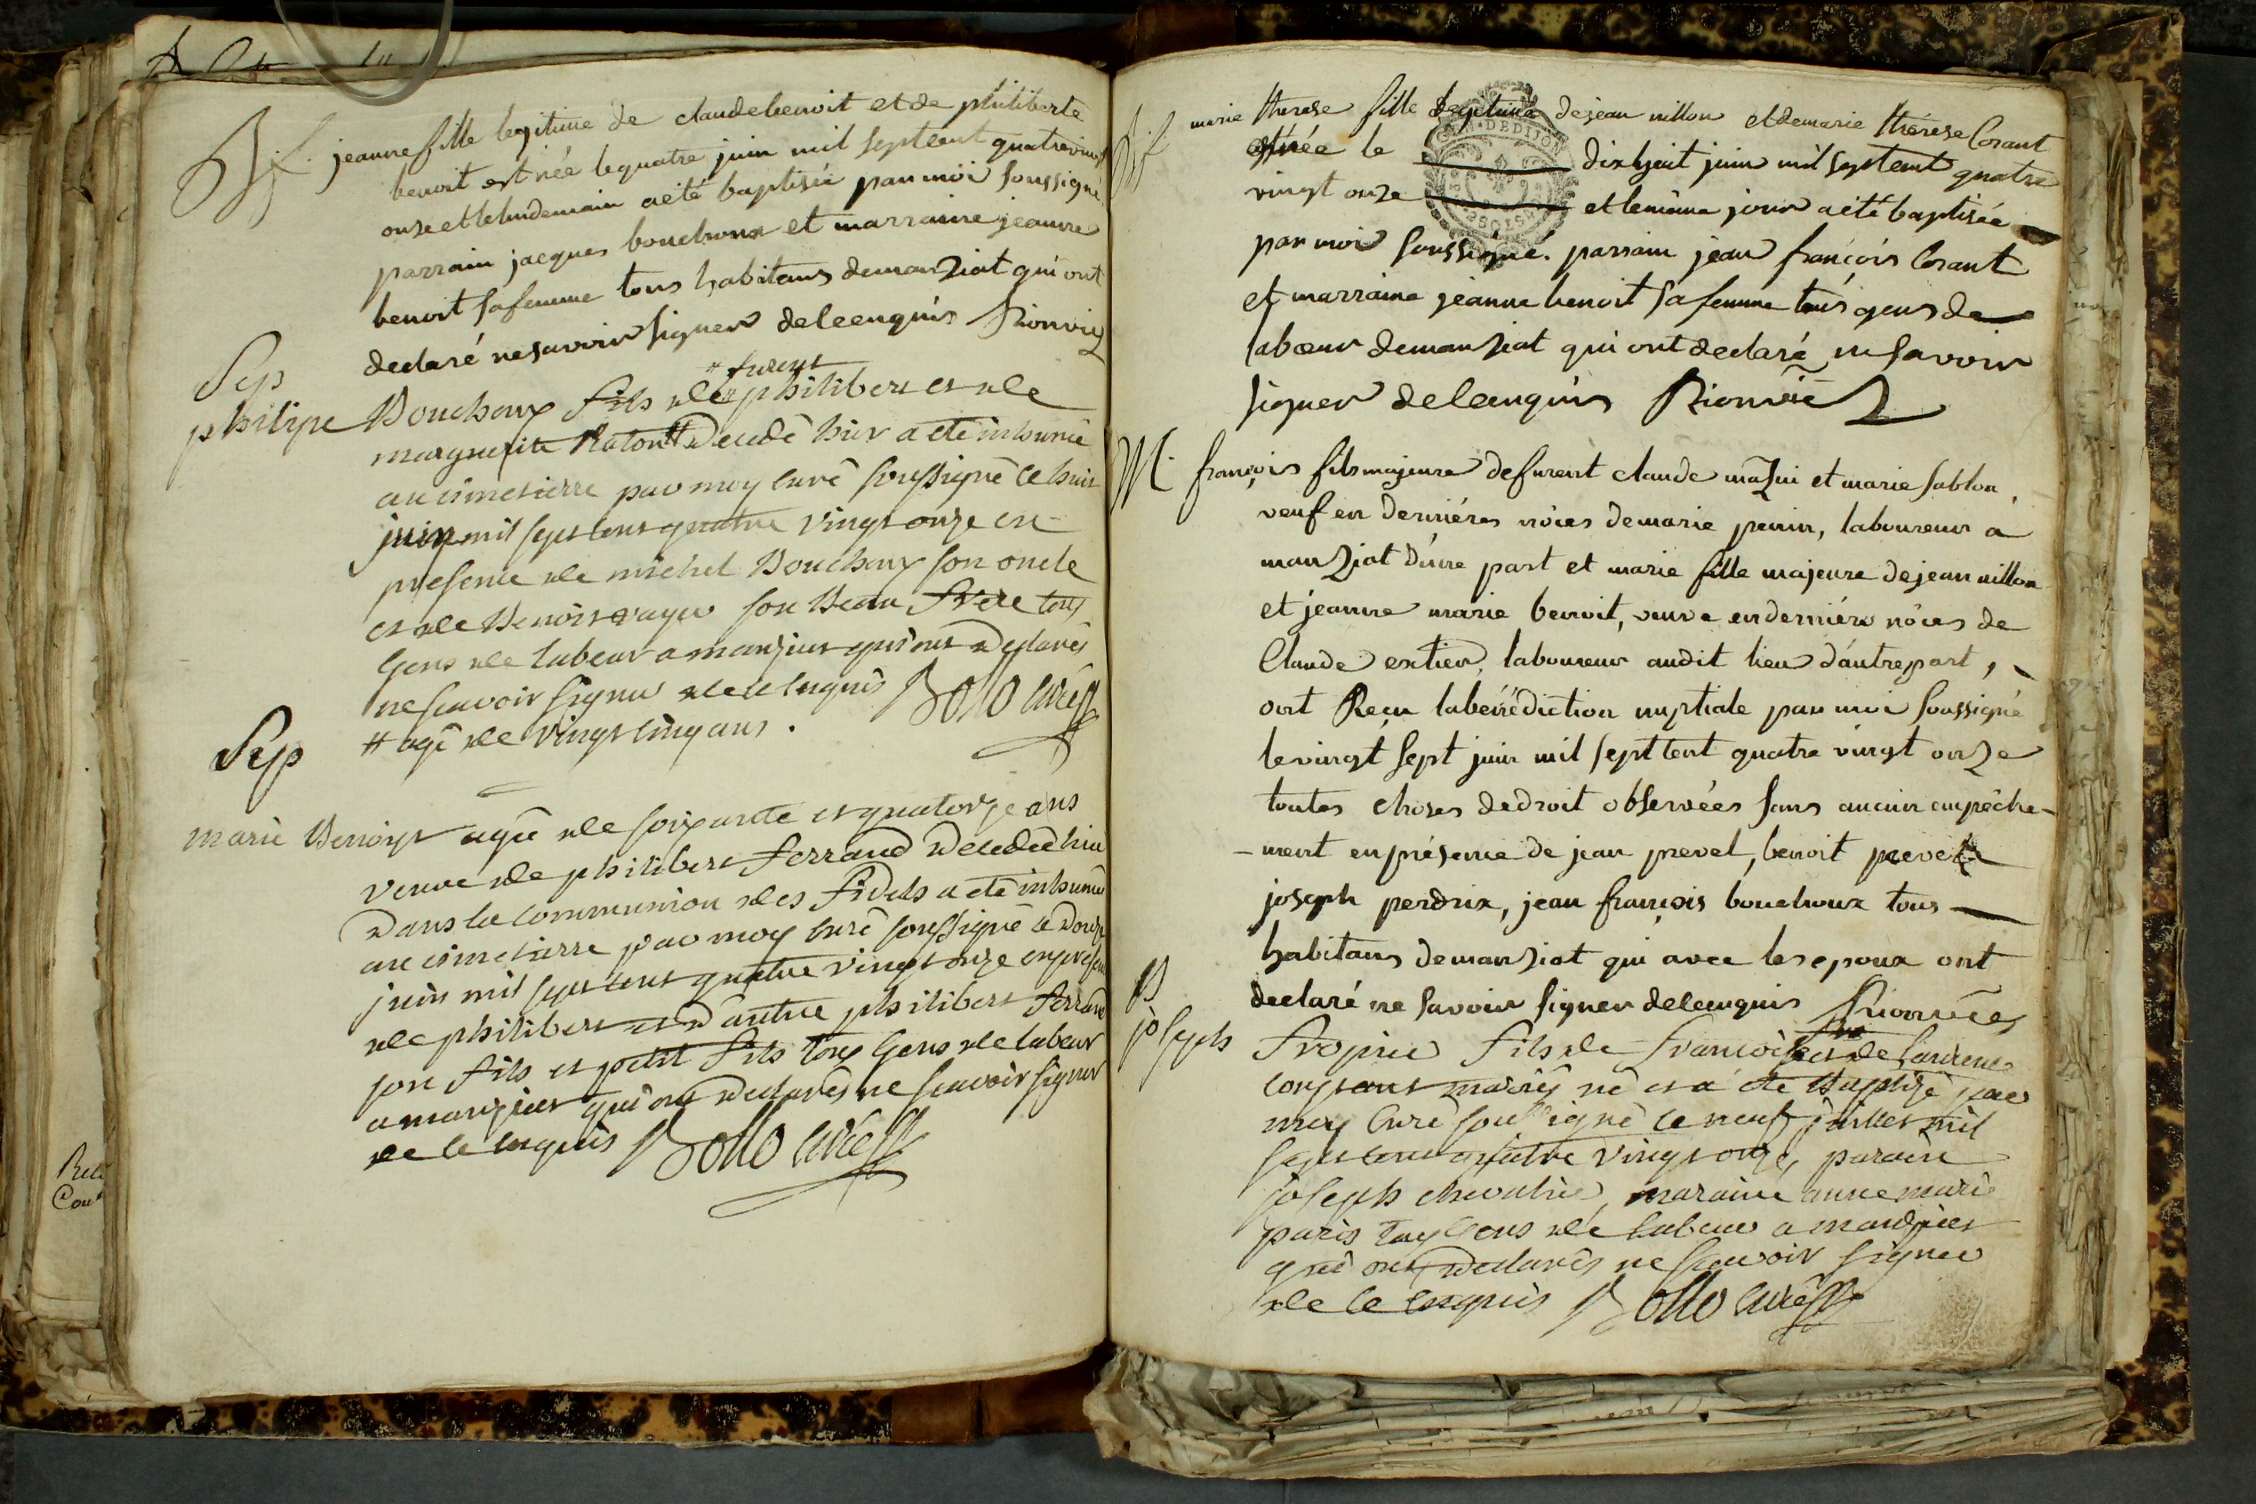 Bf. jeanne fille legitime de claude benoit et de philiberte
benoit est née le quatre juin mil sept cent quatre vingt
onze et le lendemain a eté baptisée par moi soussigné
parrain jacques bouchoux et marraine jeanne
benoit sa femme tous habitans de manziat qui ont
declaré ne savoir signer de ce enquis
Sep
" furent
philipe Bouchoux fils de " philibert et de
marguerite Raton # decedé hier a eté inhumé
au cimetierre par moy curé soussigné le huit
juin mil sept cent quatre vingt onze en
presence de michel Bouchoux son oncle
et de Benoit son Beau frere tous
Gens de labeur a manziat qui ont declarés
ne scavoir signer de ce enquis Bollo curé
# agé de vingt cinq ans .
Sep
marie Benoist agée de soixante et quatorze ans
veuve de philibert ferrand decedée hier
Dans la communion des fidels a eté inhumée
au cimetierre par moy curé soussigné le douze
juin mil sept cent quatre vingt onze en presence
de philibert et d'autre philibert ferrand
son fils et petit fils tous Gens de labeur
a manziat qui ont declarés ne scavoir signer
de ce enquis Bollo curé
Bf marie therese fille legitime de jean nillon et de marie thérese Corant
est née le dix huit juin mil sept cent quatre
DEDIJON
vingt onze et le même jour a eté baptisée
par moi soussigné. parrain jean françois Corant
et marraine jeanne benoit sa femme tous gens de
labœur de manziat qui ont declaré ne savoir
signer de ce enquis
M. françois fils majeure de furent claude et marie sablon
veuf en derniéres nôces de marie penin, laboureur a
manziat d'une part et marie fille majeure de jean nillon
et jeanne marie benoit, veuve en derniéres nôces de
Claude extier, laboureur audit lieu d'autre part,
ont Reçu la bénédiction nuptiale par moi soussigné
le vingt sept juin mil sept cent quatre vingt onze
toutes choses de droit observées sans aucun empêche-
-ment en présence de jean prevel, benoit prevel
joseph perdrix, jean françois bouchoux tous
habitans de manziat qui avec les epoux ont
declaré ne savoir signer de ce enquis
B
joseph fils de françois et de
mariés né et a eté Baptizé par
moy Curé soussigné le neuf juillet mil
sept cent quatre vingt onze, parain
joseph chevalier, maraine anne marie
paris tous Gens de labeur a manziat
qui ont declarés ne scavoir signer
de ce enquis Bollo curé